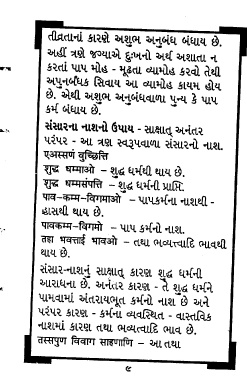 તીવ્રતાનાં કારણે અશુભ અનુબંધ બંધાય છે.
અહીં ત્રણે જગ્યાએ દુઃખનો અર્થ અશાતા ન
કરતાં પાપ મોહ - મૂઢતા વ્યામોહ કરવો તેથી
અપુનર્બંધક સિવાય આ વ્યામોહ કાયમ હોય
છે. એથી અશુભ અનુબંધવાળા પુન્ય કે પાપ
કર્મ બંધાય છે.
સંસારના નાશનો ઉપાય - સાક્ષાત્ અનંતર
પરંપર - આ ત્રણ સ્વરૂપવાળા સંસારનો નાશ.
एअस्सणं वुच्छित्ति
शुद्ध धम्माओ – શુદ્ધ ધર્મથી થાય છે.
शुद्ध धम्मसंपत्ति – શુદ્ધ ધર્મની પ્રાપ્તિ.
पाव-कम्म-विगमाओ – પાપકર્મના નાશથી -
હ્રાસથી થાય છે.
पावकम्म-विगमो – પાપ કર્મનો નાશ.
तहा भवत्ताई भावओ – તથા ભવ્યત્ત્વાદિ ભાવથી
થાય છે.
સંસાર-નાશનું સાક્ષાત્ કારણ શુદ્ધ ધર્મની
આરાધના છે. અનંતર કારણ - તે શુદ્ધ ધર્મને
પામવામાં અંતરાયભૂત કર્મનો નાશ છે અને
પરંપર કારણ - કર્મના વ્યવસ્થિત - વાસ્તવિક
નાશમાં કારણ તથા ભવ્યતાદિ ભાવ છે.
तस्सपुण विवाग साहणाणि – આ તથા
૯